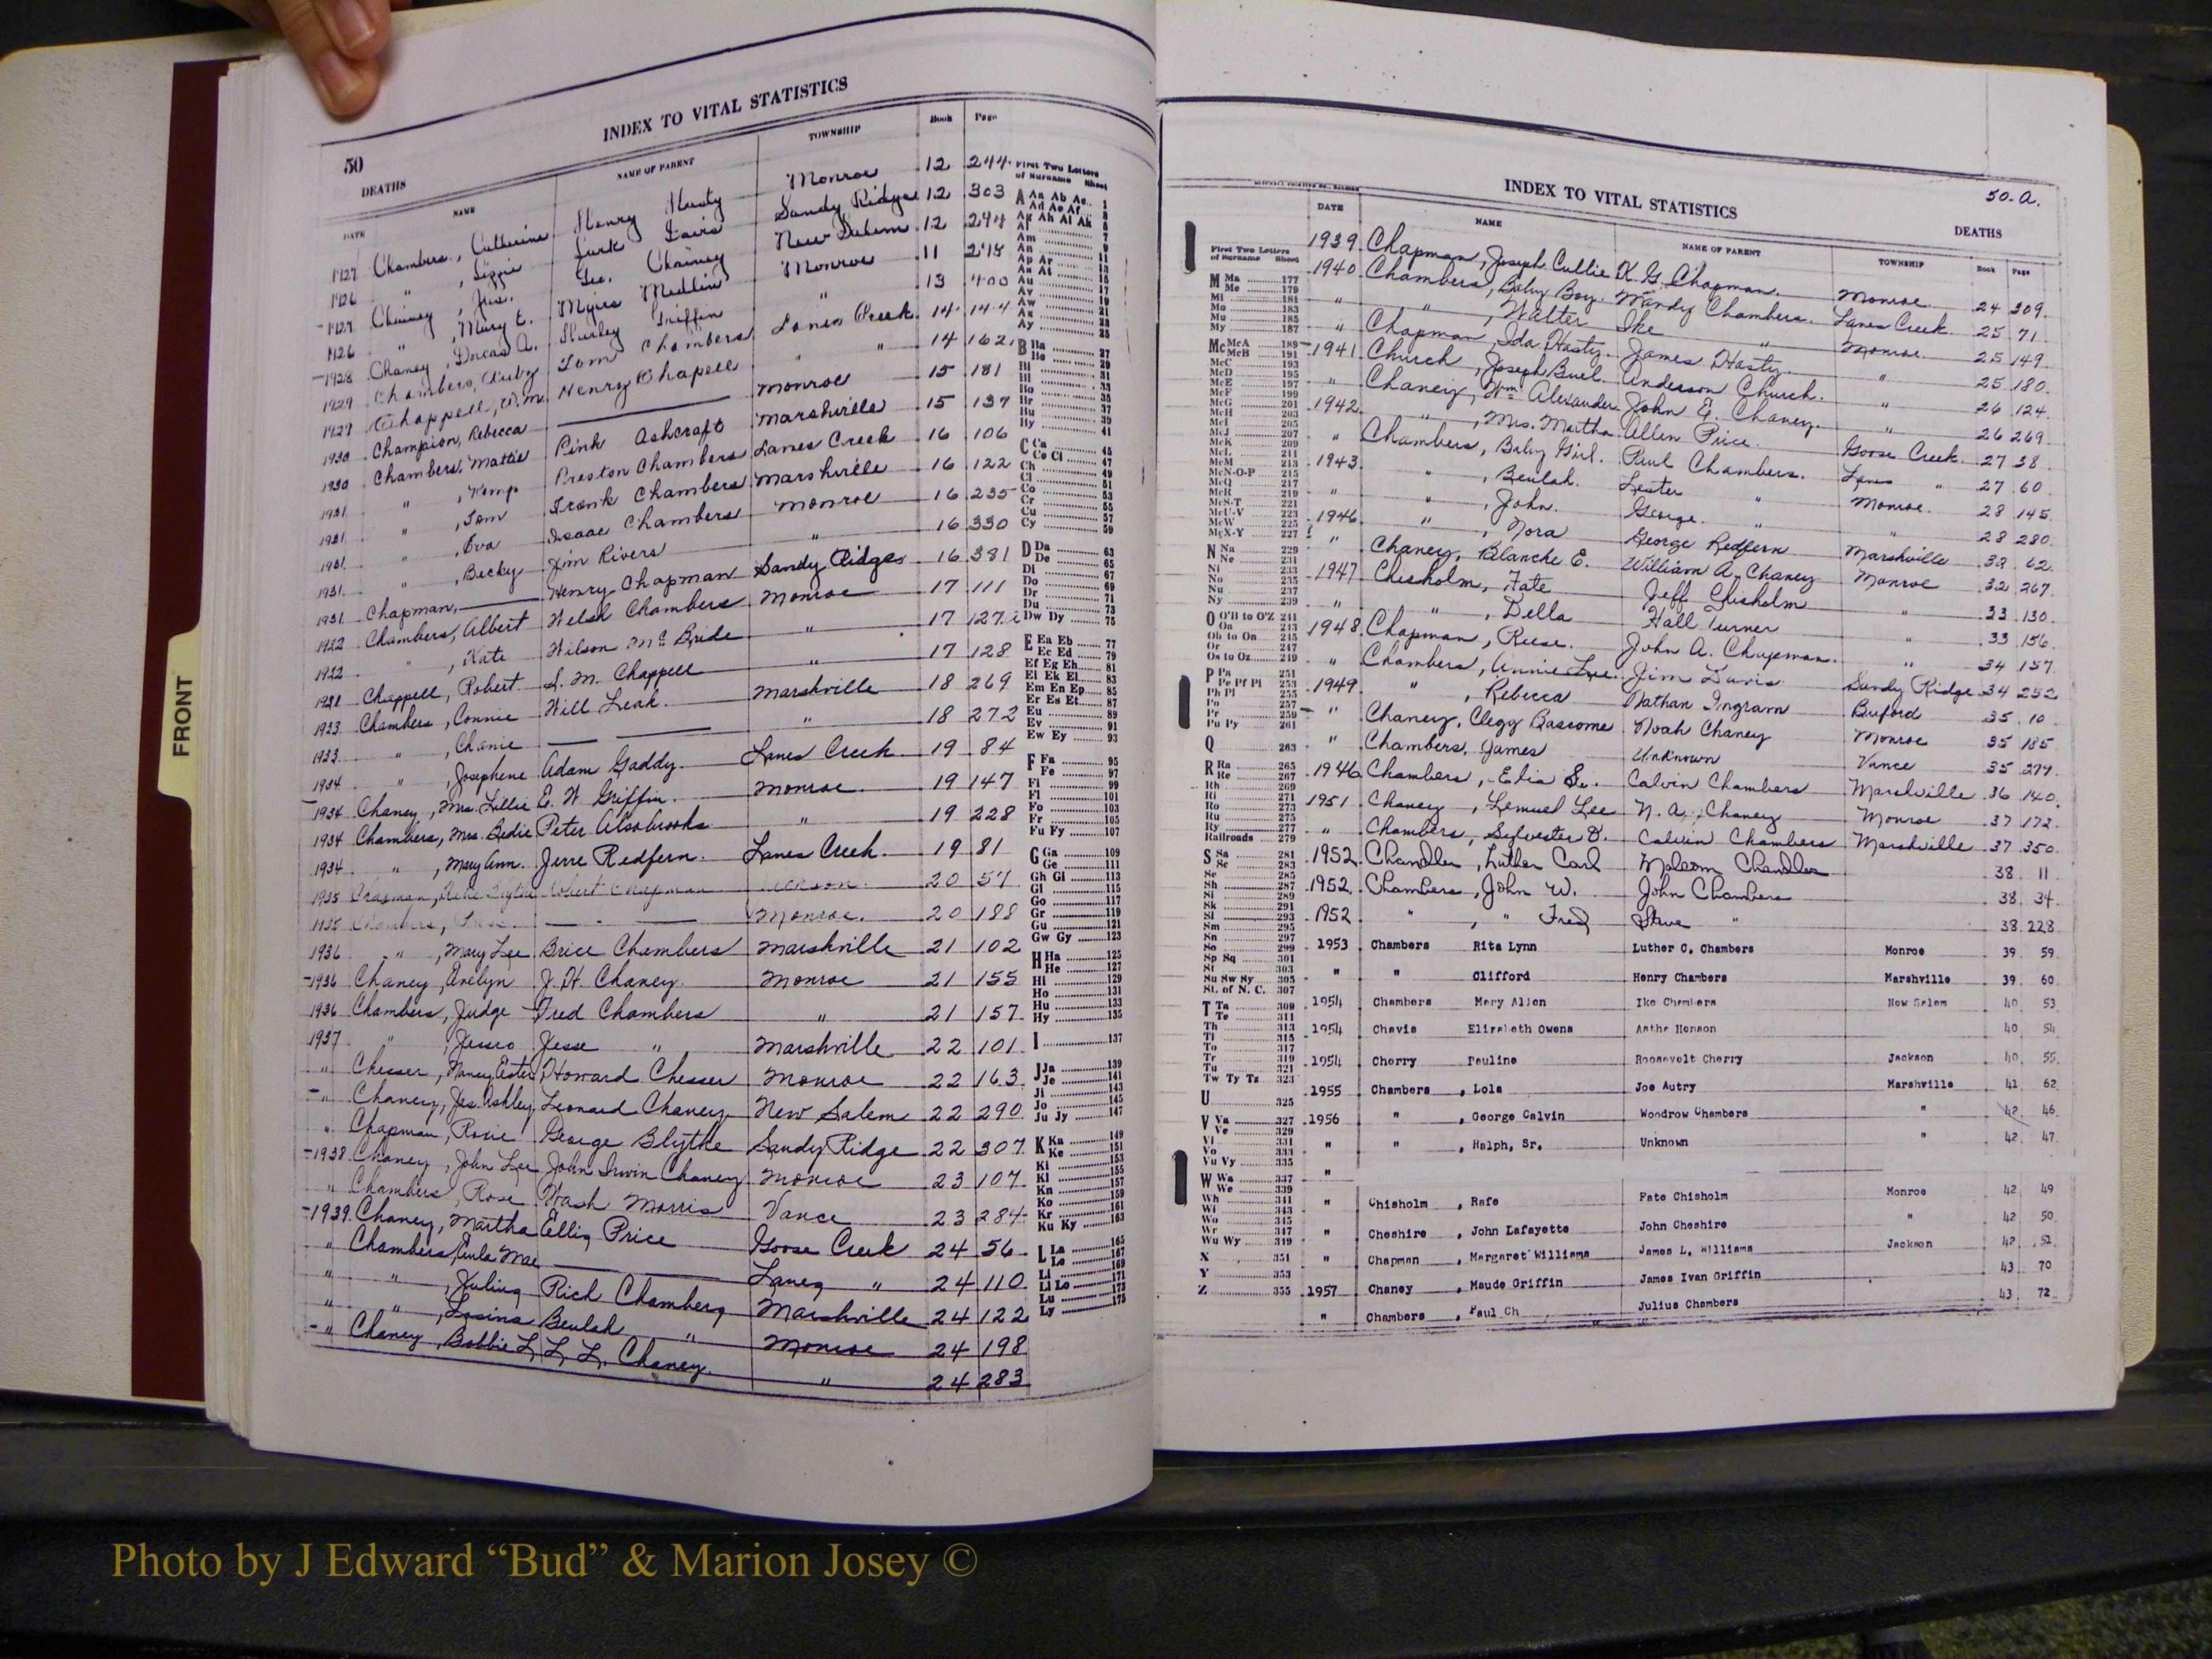 FRONT
50
INDEX TO VITAL STATISTICS
DEATHS
DATE NAME NAME OF PARENT TOWNSHIP Book Page
1927 Chambers, Catherine Henry Hasty Monroe 12 244
1926 " , Lizzie Sandy Ridge 12 303
1927 Chainey, Jas. Geo. Chainey New Salem 12 294
1926 " , Mary E. Myers Medlin Monroe 11 245
1928 Chaney, Dorcas A. Shirley Griffin " 13 400
1929 Chambers, Ruby Tom Chambers Lanes Creek 14 144
1929 Chappell, W.M. Henry Chapell " " 14 162
1930 Champion, Rebecca Monroe 15 181
1930 Chambers, Mattie Pink Ashcraft Marshville 15 137
1931 " , Kemp Preston Chambers Lanes Creek 16 106
1931 " , Tom Frank Chambers Marshville 16 122
1931 " , Eva Isaac Chambers Monroe 16 235
1931 " , Becky Jim Rivers " 16 330
1931 Chapman, Henry Chapman Sandy Ridge 16 381
1922 Chambers, Albert Welsh Chambers Monroe 17 111
1922 " , Kate Wilson McBride " 17 127
1931 Chappell, Robert S. M. Chappell " 17 128
1933 Chambers, Connie Will Leak Marshville 18 269
1933 " , Chanie " 18 272
1934 " , Josephene Adam Gaddy Lanes Creek 19 84
1934 Chaney, Mrs. Lillie E. W. Griffin Monroe 19 147
1934 Chambers, Mrs. Bedie Peter Alsobrooks " 19 228
1934 " , Mary Ann. Jerre Redfern. Lanes Creek. 19 81
1935 Chapman 20 57
1935 Chambers, Monroe. 20 188
1936 " , Mary Lee Brice Chambers Marshville 21 102
1936 Chaney, Evelyn J. H. Chaney. Monroe 21 155
1936 Chambers, Judge Fred Chambers " 21 157
1937 " , Jesse " Marshville 22 101
" Chesser, Nancy Ester Howard Chesser Monroe 22 163
" Chaney, Jas. Ashley Leonard Chaney New Salem 22 290
" Chapman, Roxie George Blythe Sandy Ridge 22 307
1938 Chaney, John Lee John Irwin Chaney Monroe 23 107
" Chambers, Rose Wash Morris Vance 23 284
1939 Chaney, Martha Ellis Price Goose Creek 24 56
" Chambers, Eula Mae Lanes " 24 110
" " , Julius Rich Chambers Marshville 24 122
" " , Losina Beulah " Monroe 24 198
" Chaney, Bobbie L. L. L. Chaney. " 24 283
First Two Letters of Surname Sheet
A Aa Ab Ac 1
B Ba 27
C Ca 45
Ce Ci 47
D Da 63
De 65
Di 67
Do 69
Dr 71
Du 73
Dw Dy 75
E Ea Eb 77
Ec Ed 79
Ef Eg Eh 81
Ei Ek El 83
Em En Ep 85
Er Es Et 87
Eu 89
Ev 91
Ew Ey 93
F Fa 95
Fe 97
Fi 99
Fl 101
Fo 103
Fr 105
Fu Fy 107
G Ga 109
Ge 111
Gh Gi 113
Gl 115
Go 117
Gr 119
Gu 121
Gw Gy 123
H Ha 125
He 127
Hi 129
Ho 131
Hu 133
Hy 135
I 137
J Ja 139
Je 141
Ji 143
Jo 145
Ju Jy 147
K Ka 149
Ke 151
Ki 153
Kl 155
Kn 157
Ko 159
Kr 161
Ku Ky 163
L La 165
Le 167
Li 169
Ll Lo 171
Lu 173
Ly 175
50-a.
INDEX TO VITAL STATISTICS
DEATHS
DATE NAME NAME OF PARENT TOWNSHIP Book Page
1939 Chapman, Joseph Cullie K. G. Chapman. Monroe 24 309
1940 Chambers, Baby Boy. Wandy Chambers. Lanes Creek. 25 71
" " , Walter Ike " Monroe 25 149
" Chapman, Ida Hasty. James Hasty. " 25 180
1941 Church, Joseph Buel. Anderson Church. " 26 124
" Chaney, Wm. Alexander John E. Chaney. " 26 269
1942 " , Mrs. Martha Allen Price Goose Creek 27 38
" Chambers, Baby Girl. Paul Chambers. Lanes " 27 60
1943 " , Beulah. Lester " Monroe. 28 145
" " , John. George. " 28 280
1946 " , Nora George Redfern Marshville 32 62
" Chaney, Blanche E. William A. Chaney Monroe 32 267
1947 Chisholm, Fate Jeff Chisholm " 33 130
" " , Della Hall Turner " 33 156
1948 Chapman, Reese. John A. Chapman. " 34 157
" Chambers, Annie Lee. Jim Davis Sandy Ridge 34 252
1949 " , Rebecca Nathan Ingram Buford 35 10
" Chaney, Clegg Bascome Noah Chaney Monroe 35 185
" Chambers, James Unknown Vance 35 279
1946 Chambers, Elia Sr. Calvin Chambers Marshville 36 140
1951 Chaney, Lemuel Lee N. A. Chaney Monroe 37 172
" Chambers, Sylvester D. Calvin Chambers Marshville 37 350
1952 Chandler, Luther Carl Malcom Chandler 38 11
1952 Chambers, John W. John Chambers 38 34
1952 " , " Fred Steve " 38 228
1953 Chambers Rita Lynn Luther C. Chambers Monroe 39 59
" " Clifford Henry Chambers Marshville 39 60
1954 Chambers Mary Allen Ike Chambers New Salem 40 53
1954 Chavis Elizabeth Owens Henson 40 54
1954 Cherry Pauline Roosevelt Cherry Jackson 40 55
1955 Chambers , Lola Joe Autry Marshville 41 62
1956 " , George Calvin Woodrow Chambers " 42 46
" " , Ralph, Sr. Unknown " 42 47
"
" Chisholm , Rafe Fate Chisholm Monroe 42 49
" Cheshire , John Lafayette John Cheshire " 42 50
" Chapman , Margaret Williams James L. Williams Jackson 42 52
1957 Chaney , Maude Griffin James Ivan Griffin 43 70
" Chambers , Paul Ch Julius Chambers 43 72
First Two Letters of Surname Sheet
M Ma 177
Me 179
Mi 181
Mo 183
Mu 185
My 187
Mc McA 189
McB 191
McC 193
McD 195
McE 197
McF 199
McG 201
McH 203
McI 205
McJ 207
McK 209
McL 211
McM 213
McN-O-P 215
McQ 217
McR 219
McS-T 221
McU-V 223
McW 225
McX-Y 227
N Na 229
Ne 231
Ni 233
No 235
Nu 237
Ny 239
P Pa 251
Q 263
R Ra 265
Re 267
Rh 269
Ri 271
Ro 273
Ru 275
Ry 277
Railroads 279
S Sa 281
Sc 283
Se 285
Sh 287
Si 289
Sk 291
Sl 293
Sm 295
Sn 297
So 299
Sp Sq 301
St 303
Su Sw Sy 305
St. of N. C. 307
T Ta 309
Te 311
Th 313
Ti 315
To 317
Tr 319
Tu 321
Tw Ty Tz 323
U 325
V Va 327
Ve 329
Vi 331
Vo 333
Vu Vy 335
W Wa 337
We 339
X 351
Y 353
Z 355
Photo by J Edward “Bud” & Marion Josey ©